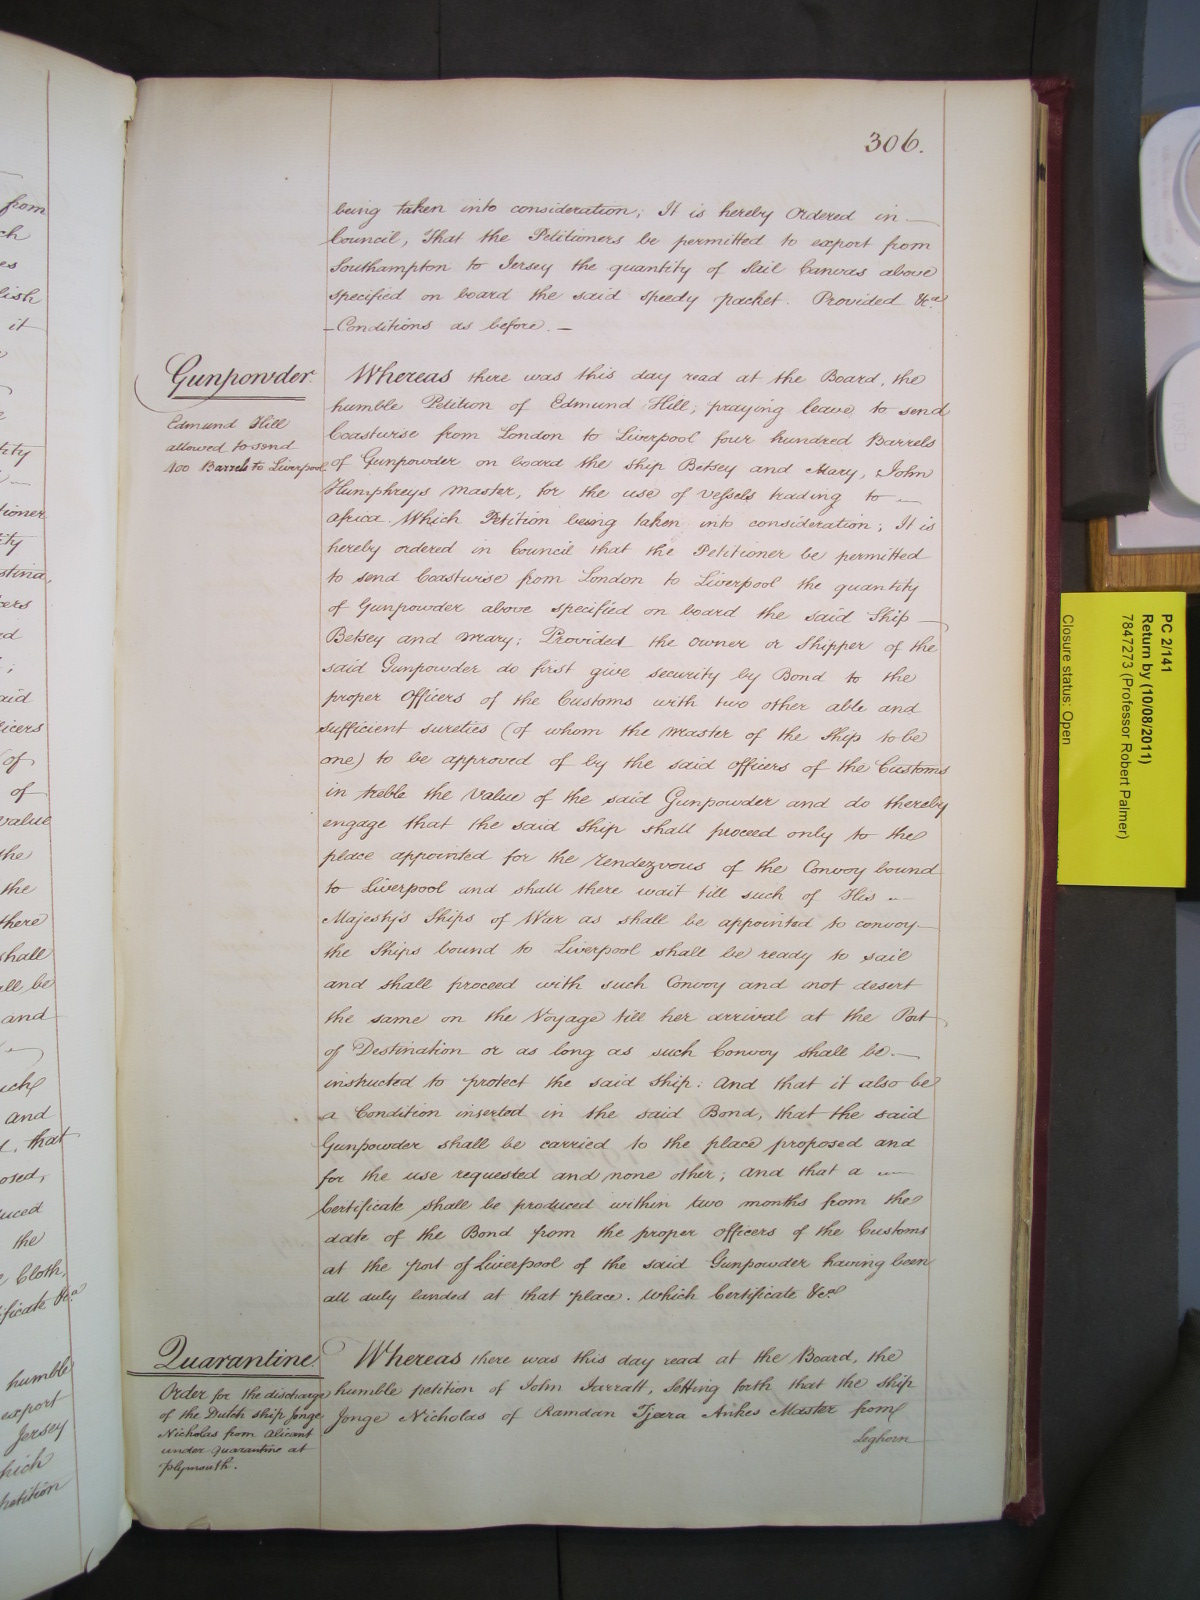 306.
being taken into consideration; It is hereby Ordered in
Council, That the Petitioners be permitted to export from
Southampton to Jersey the quantity of Sail Canvas above
specified on board the said speedy packet. Provided &ca
Conditions as before.
Gunpowder
Edmund Hill
allowed to send
400 Barrels to Liverpool
Whereas there was this day read at the Board, the
humble Petition of Edmund Hill; praying leave to send
Coastwise from London to Liverpool four hundred Barrels
of Gunpowder on board the ship Betsey and Mary, John
Humphreys Master, for the use of vessels trading to
Africa. Which Petition being taken into consideration; It is
hereby ordered in Council that the Petitioner be permitted
to send Coastwise from London to Liverpool the quantity
of Gunpowder above specified on board the said Ship
Betsey and Mary; Provided the owner or Shipper of the
said Gunpowder do first give security by Bond to the
proper Officers of the Customs with two other able and
sufficient sureties (of whom the Master of the Ship to be
one) to be approved of by the said officers of the Customs
in treble the value of the said Gunpowder and do thereby
engage that the said Ship shall proceed only to the
place appointed for the rendezvous of the Convoy bound
to Liverpool and shall there wait till such of His
Majesty's Ships of War as shall be appointed to convoy
the Ships bound to Liverpool shall be ready to sail
and shall proceed with such Convoy and not desert
the same on the Voyage till her arrival at the Port
of Destination or as long as such Convoy shall be
instructed to protect the said Ship: And that it also be
a Condition inserted in the said Bond, that the said
Gunpowder shall be carried to the place proposed and
for the use requested and none other; and that a
Certificate shall be produced within two months from the
date of the Bond from the proper officers of the Customs
at the port of Liverpool of the said Gunpowder having been
all duly landed at that place. which Certificate &ca
Quarantine
Order for the discharge
of the Dutch ship Jonge
Nicholas from Alicant
under Quarantine at
Plymouth.
Whereas there was this day read at the Board, the
humble petition of John Jarratt, Setting forth that the ship
Jonge Nicholas of Ramdan Tjeera Ankes Master from
Leghorn
PC 2/141
Return by (10/08/2011)
7847273 (Professor Robert Palmer)
Closure status: Open
from
lish
it
tioner
the
the
there
shall
and
and
that
the
Cloth,
humble
export
Jersey